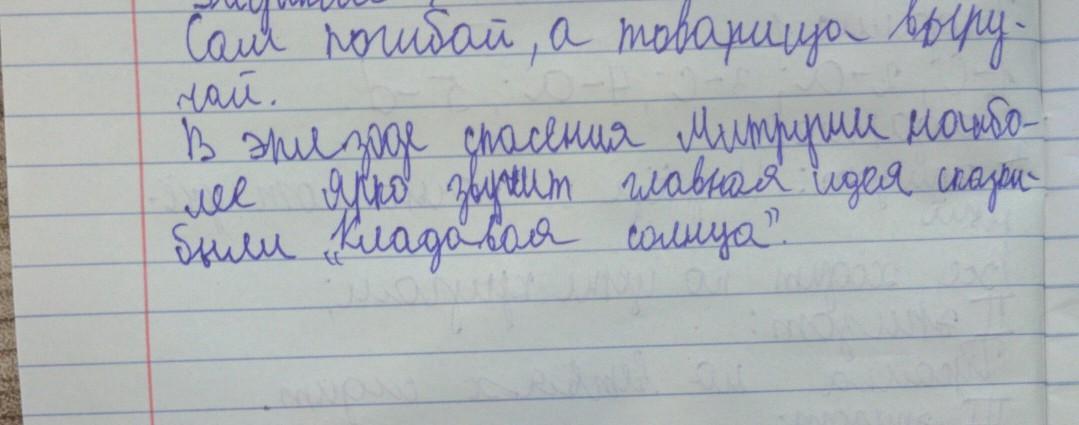 Сам погибай, а товарища выру-
чай.
В эпизоде спасения Митраши наибо-
лее ярко звучит главная идея сказки-
были „Кладавая солнца”.